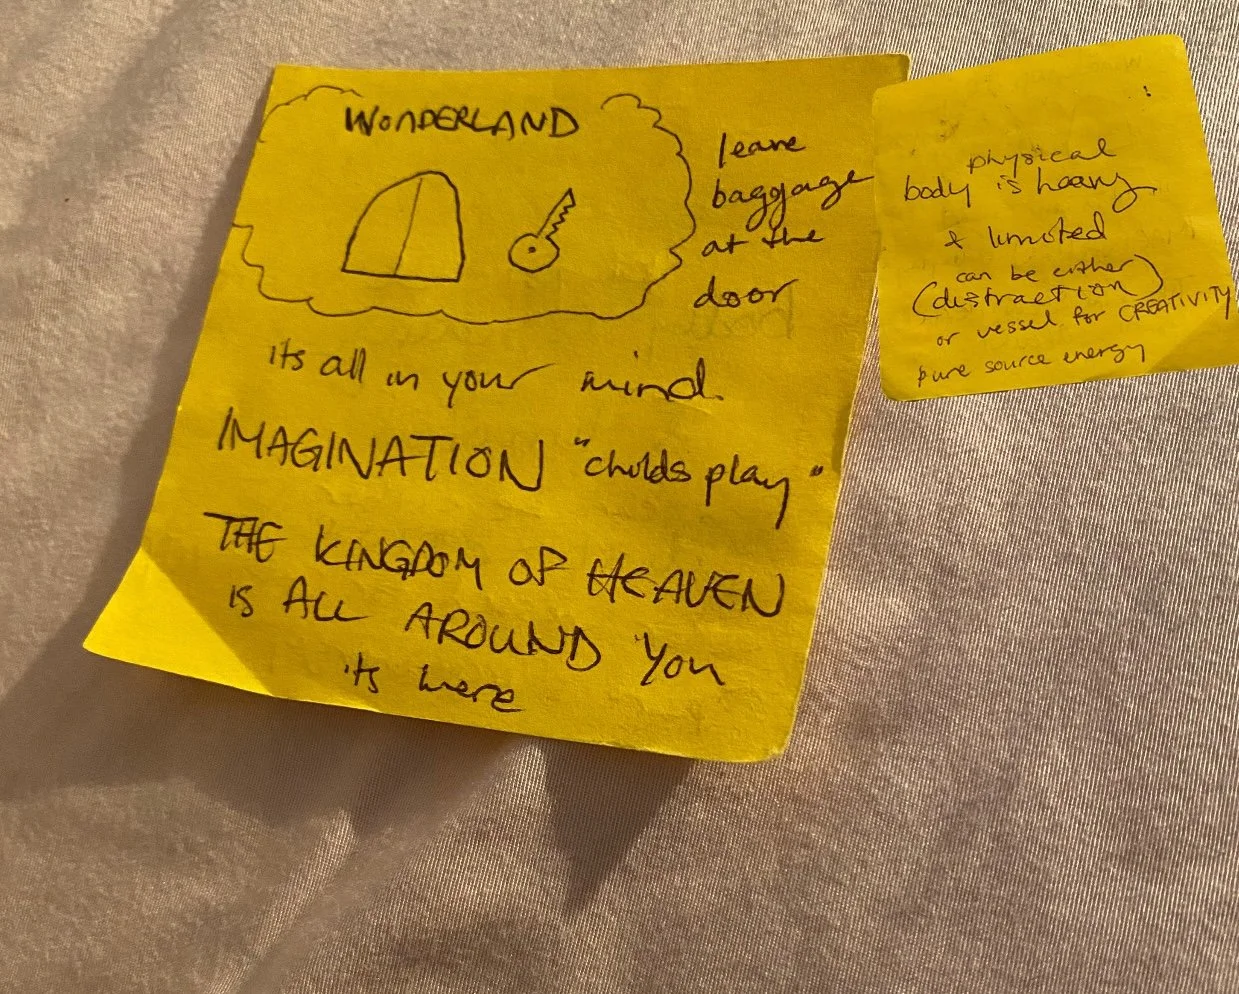 WONDERLAND
leave
baggage
at the
door
its all in your mind.
IMAGINATION "childs play"
THE KINGDOM OF HEAVEN
is ALL AROUND You
its here
physical
body is heavy
& limited
can be either
(distraction)
or vessel for CREATIVITY
pure source energy